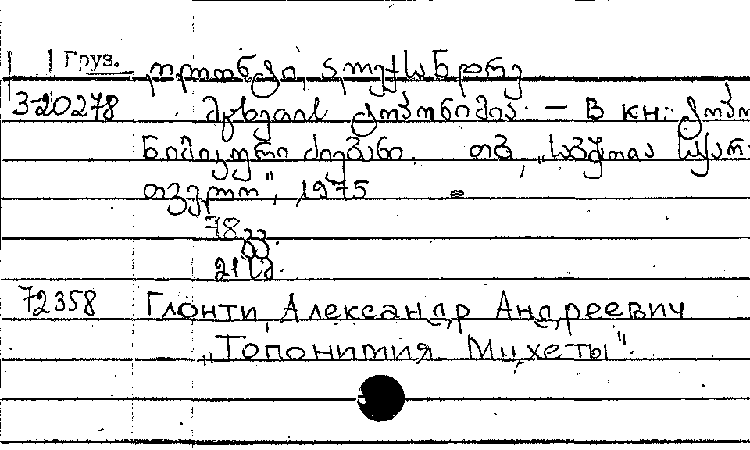 Груз. ღლონტი, ალექსანდრე
3-20278 მცხეთის ტოპონიმია. — В кн: ტოპო
ნიმიკური ძიებანი. თბ, „საბჭოთა საქარ
თველო", 1975 =
78 გვ.
21 სმ.
72358 Глонти, Александр Андреевич
„Топонимия Мцхеты".